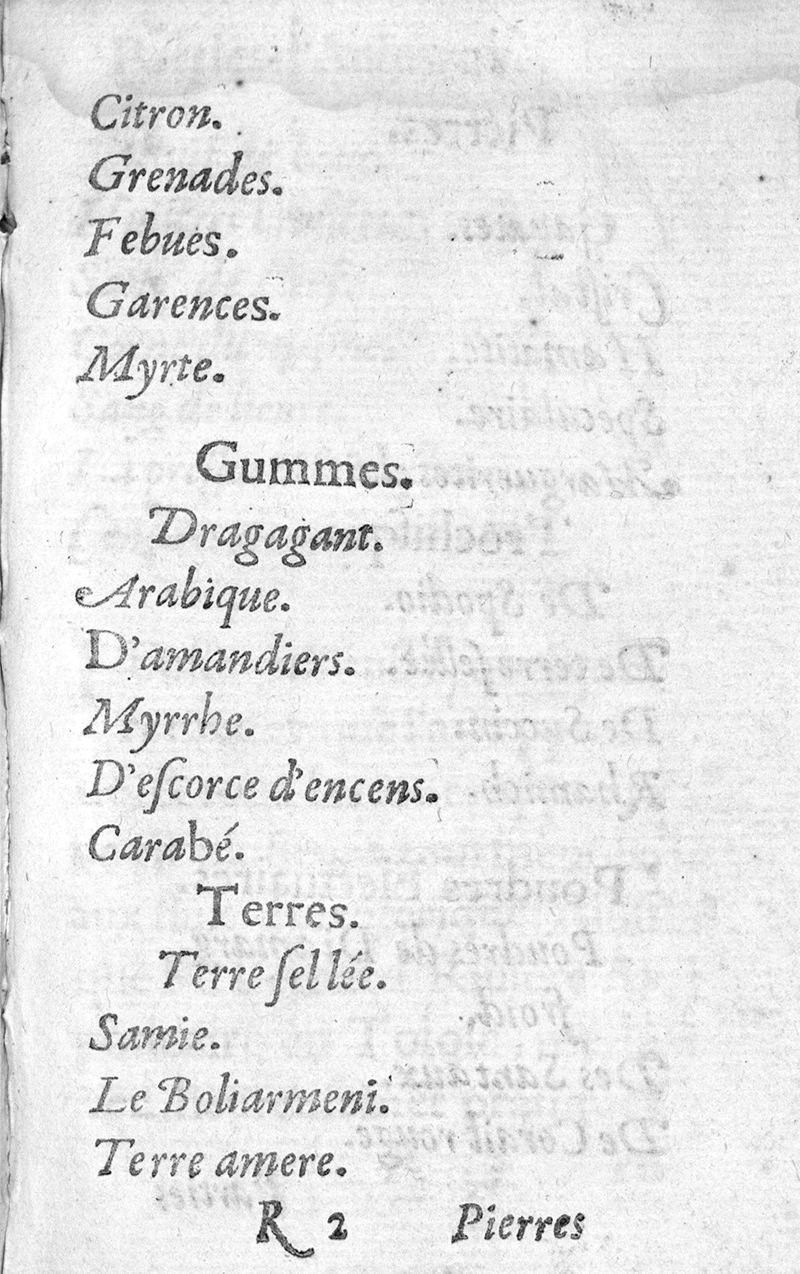 Citron.
Grenades.
Febues.
Garences.
Myrte.
Gummes.
Dragagant.
Arabique.
D'amandiers.
Myrrhe.
D'eſcorce d'encens.
Carabé.
Terres.
Terre ſellée.
Samie.
Le Boliarmeni.
Terre amere.
R 2 Pierres